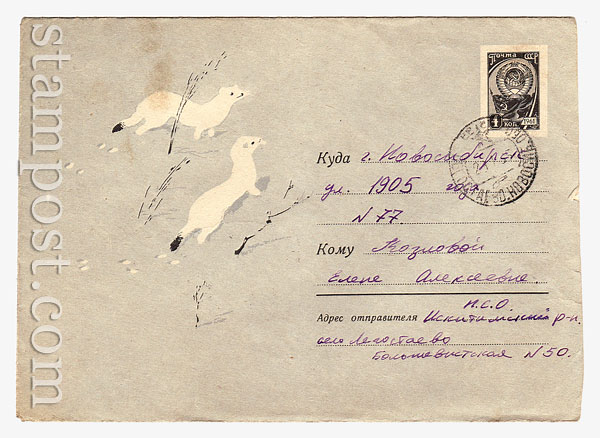 stampost.com
Почта СССР
1961
4 коп
Куда г. Новосибирск
ул. 1905 год
N 77.
Кому Козловой
Елене Алексеевне
Н.С.О.
Адрес отправителя Искитимский р-н.
село Легостаево
Большевистская N 50.